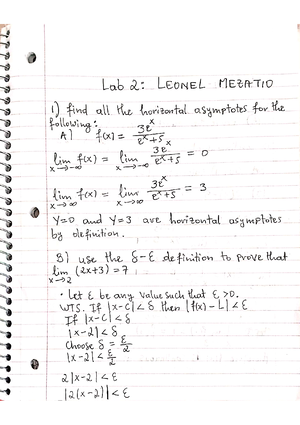 Lab 2: LEONEL MEZATIO
1) find all the horizontal asymptotes for the
following:
A) f(x) = 3e^x / e^x+5
lim x→-∞ f(x) = lim x→-∞ 3e^x / e^x+5 = 0
lim x→∞ f(x) = lim x→∞ 3e^x / e^x+5 = 3
Y=0 and Y=3 are horizontal asymptotes
by definition.
B) use the δ-ε definition to prove that
lim x→2 (2x+3) = 7
· Let ε be any value such that ε>0.
WTS. If |x-c|<δ then |f(x)-L|<ε
If |x-c|<δ
|x-2|<δ
Choose δ = ε/2
|x-2|<ε/2
2|x-2|<ε
|2(x-2)|<ε